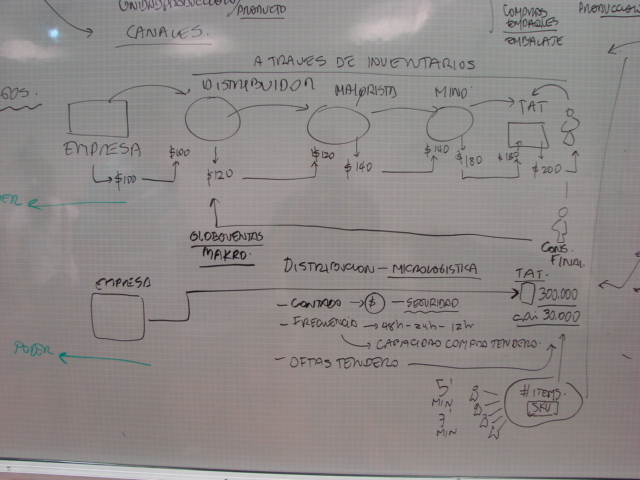 PRODUCTO
CANALES.
COMPRAS
EMPAQUES
EMBALAJE
PRODUCCION
A TRAVES DE INVENTARIOS
DISTRIBUIDOR
MAYORISTA
MINO
TAT
EMPRESA
$100
$100
$120
$120
$140
$140
$180
$180
$200
GLOBOVENTAS
MAKRO.
CONS.
FINAL
DISTRIBUCION - MICROLOGISTICA
TAT.
EMPRESA
- CONTADO → $ - SEGURIDAD
300.000
30.000
- FRECUENCIA → 48h - 24h - 12h
CAPACIDAD COMPRA TENDERO.
PODER
- OFTAS TENDERO
5'
MIN
7'
MIN
# ITEMS.
SKU